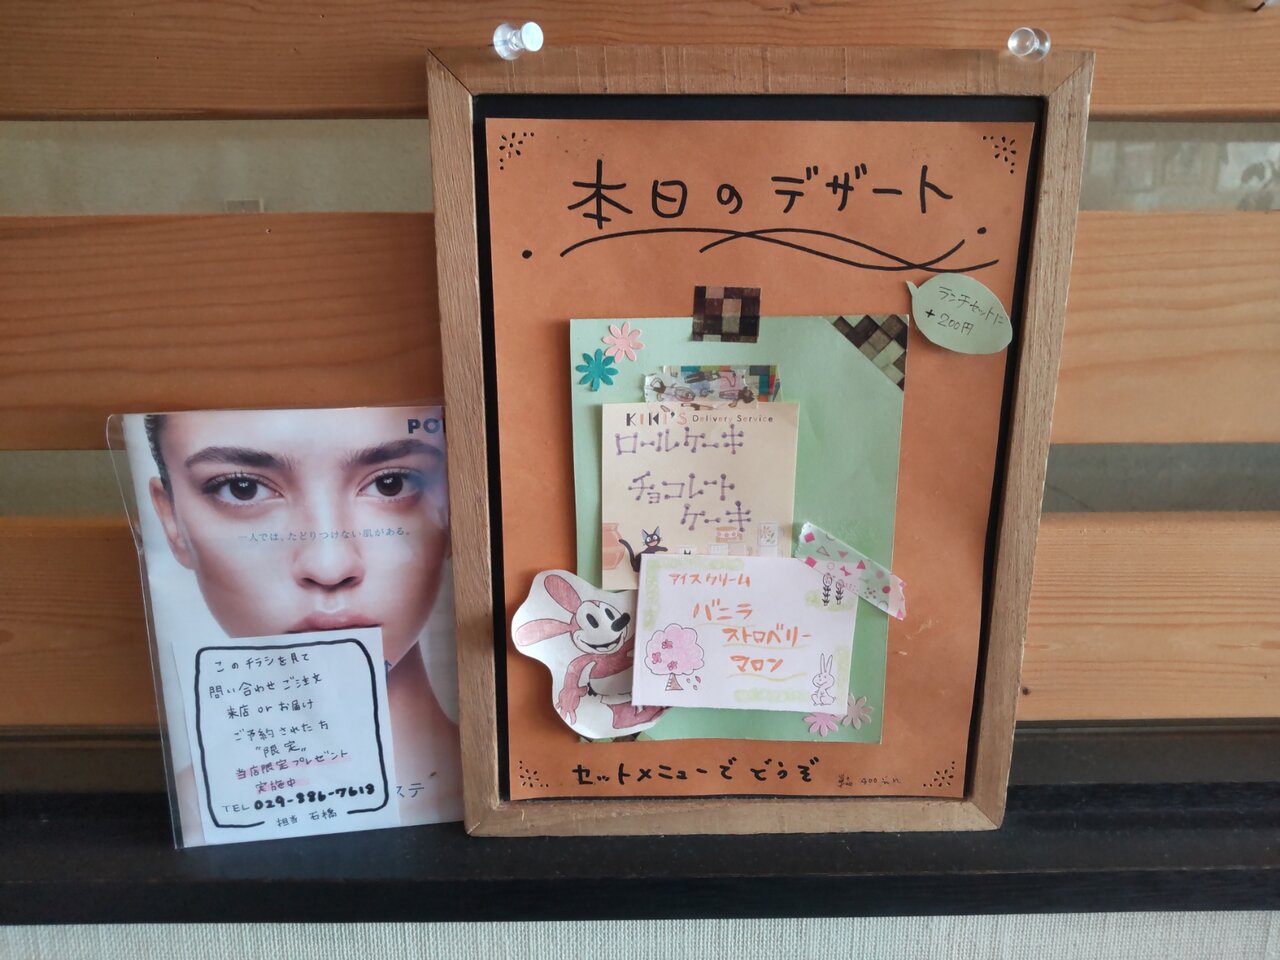 本日のデザート
ランチセットに
+200円
KIKI'S Delivery Service
ロールケーキ
チョコレート
ケーキ
アイスクリーム
バニラ
ストロベリー
マロン
セットメニューでどうぞ
一人では、たどりつけない肌がある。
このチラシを見て
問い合わせご注文
来店orお届け
ご予約された方
"限定"
当店限定プレゼント
実施中
TEL 029-886-7618
担当 石橋
ステ